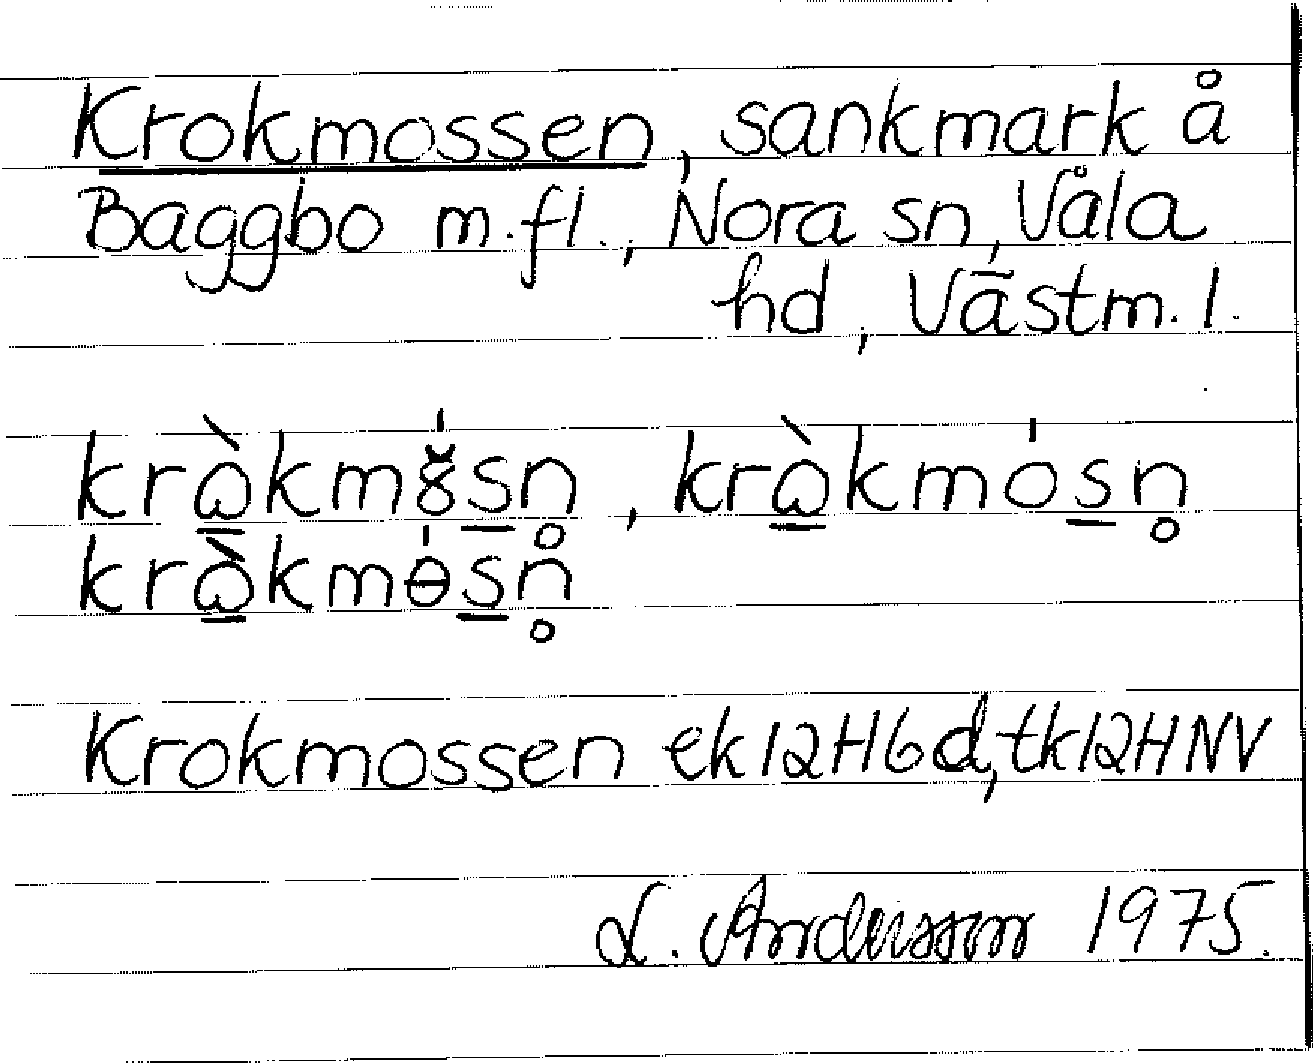 Krokmossen, sankmark å
Baggbo m.fl., Nora sn, Våla
hd, Västm. l.
krὼkmȣ̆́sn̥, krὼkmósn̥
krὼkmɵ́sn̥
Krokmossen ek12H6d, tk12HNV
L. Andersson 1975.